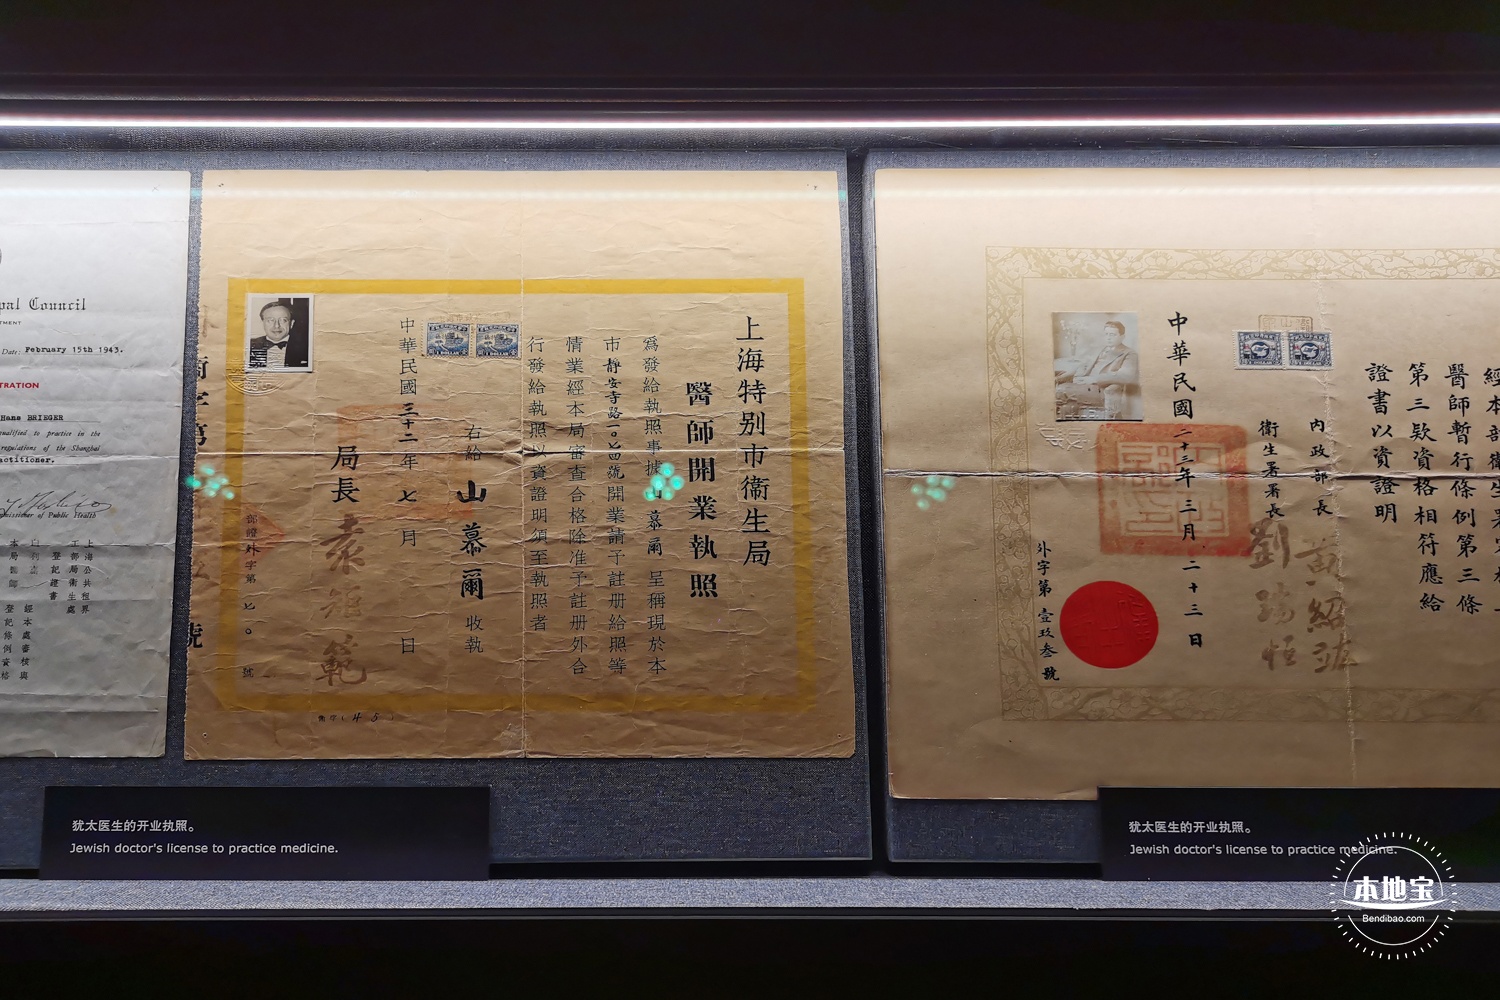 pal Council
Date: February 15th 1943.
TRATION
Hans BRIEGER
qualified to practice in the
regulations of the Shanghai
actitioner.
Commissioner of Public Health
上海特别市衞生局
醫師開業執照
爲發給執照事據山慕爾呈稱現於本
市靜安寺路一〇七四號開業請予註册給照等
情業經本局審查合格除准予註册外合
行發給執照以資證明須至執照者
右給山慕爾收執
中華民國三十二年七月 日
局長
袁矩範
部證外字第七〇號
衞字第
號
醫師暫行條例第三條
第三欵資格相符應給
證書以資證明
內政部長
黃紹竑
衞生署署長
劉瑞恒
中華民國二十三年三月二十三日
外字第壹玖叁號
犹太医生的开业执照。
Jewish doctor's license to practice medicine.
犹太医生的开业执照。
Jewish doctor's license to practice medicine.
本地宝
Bendibao.com